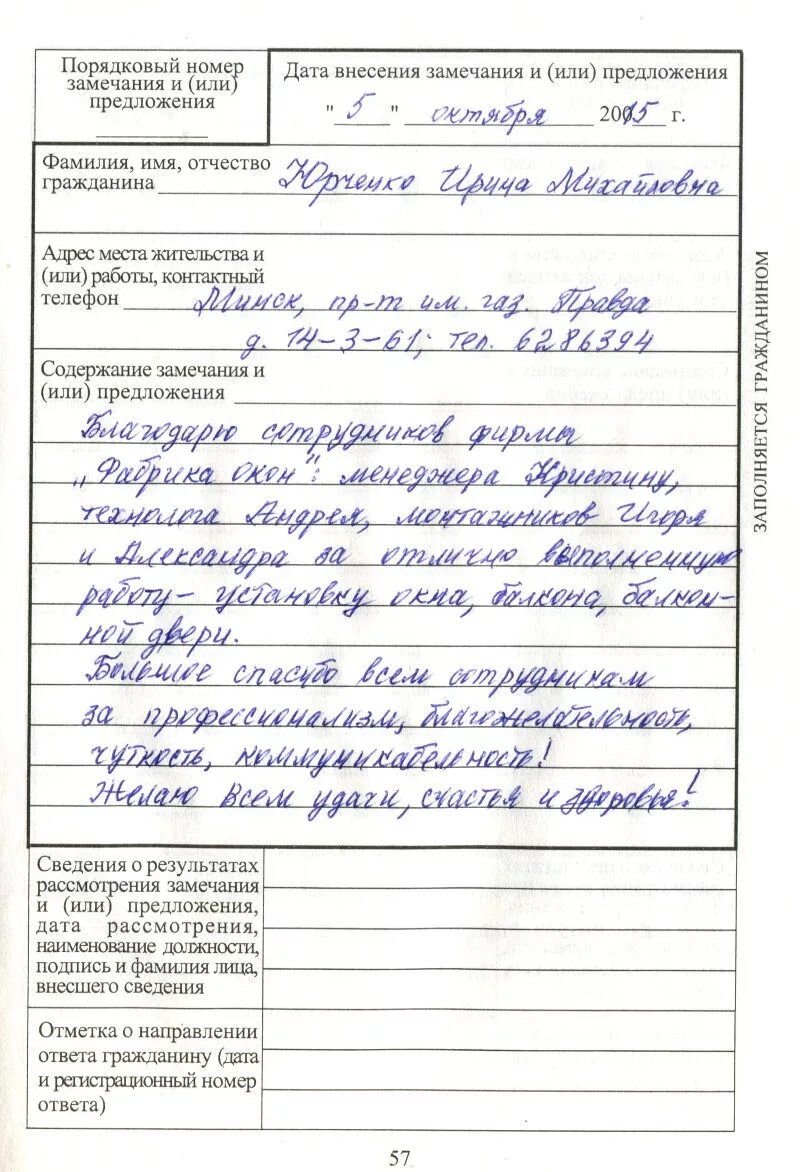 Порядковый номер
замечания и (или)
предложения
Дата внесения замечания и (или) предложения
"5" октября 20015 г.
Фамилия, имя, отчество
гражданина Юрченко Ирина Михайловна
Адрес места жительства и
(или) работы, контактный
телефон Минск, пр-т им. газ. Правда
д. 14-3-61; тел. 6286394
Содержание замечания и
(или) предложения
Благодарю сотрудников фирмы
„Фабрика окон": менеджера Кристину,
технолога Андрея, монтажников Игоря
и Александра за отлично выполненную
работу - установку окна, балкона, балкон-
ной двери.
Большое спасибо всем сотрудникам
за профессионализм, благожелательность,
чуткость, коммуникабельность!
Желаю всем удачи, счастья и здоровья!
ЗАПОЛНЯЕТСЯ ГРАЖДАНИНОМ
Сведения о результатах
рассмотрения замечания
и (или) предложения,
дата рассмотрения,
наименование должности,
подпись и фамилия лица,
внесшего сведения
Отметка о направлении
ответа гражданину (дата
и регистрационный номер
ответа)
57